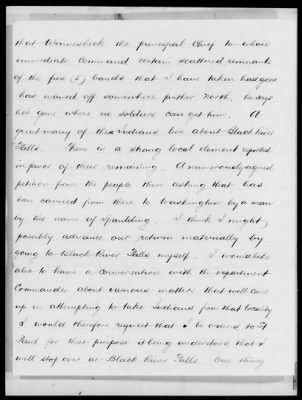 that Winnesheek the principal Chief to whose
immediate Command certain scattered remnants
of the five (5) bands that I have taken has gone
has moved off somewhere further North, he says
he's gone where no soldiers can get him. A
great many of these Indians live about Black River
Falls. There is a strong local element reported
in favor of their remaining. A numerously signed
petition from the people there asking that has
been carried from there to Washington by a man
by the name of Spaulding. I think I might
possibly advance our return materially by
going to Black River Falls myself. I would like
also to have a Conversation with the Department
Commander about various matters that will come
up in attempting to take Indians from that locality
I would therefore request that I be ordered to St
Paul for that purpose it being understood that I
will stop over at Black River Falls. One thing